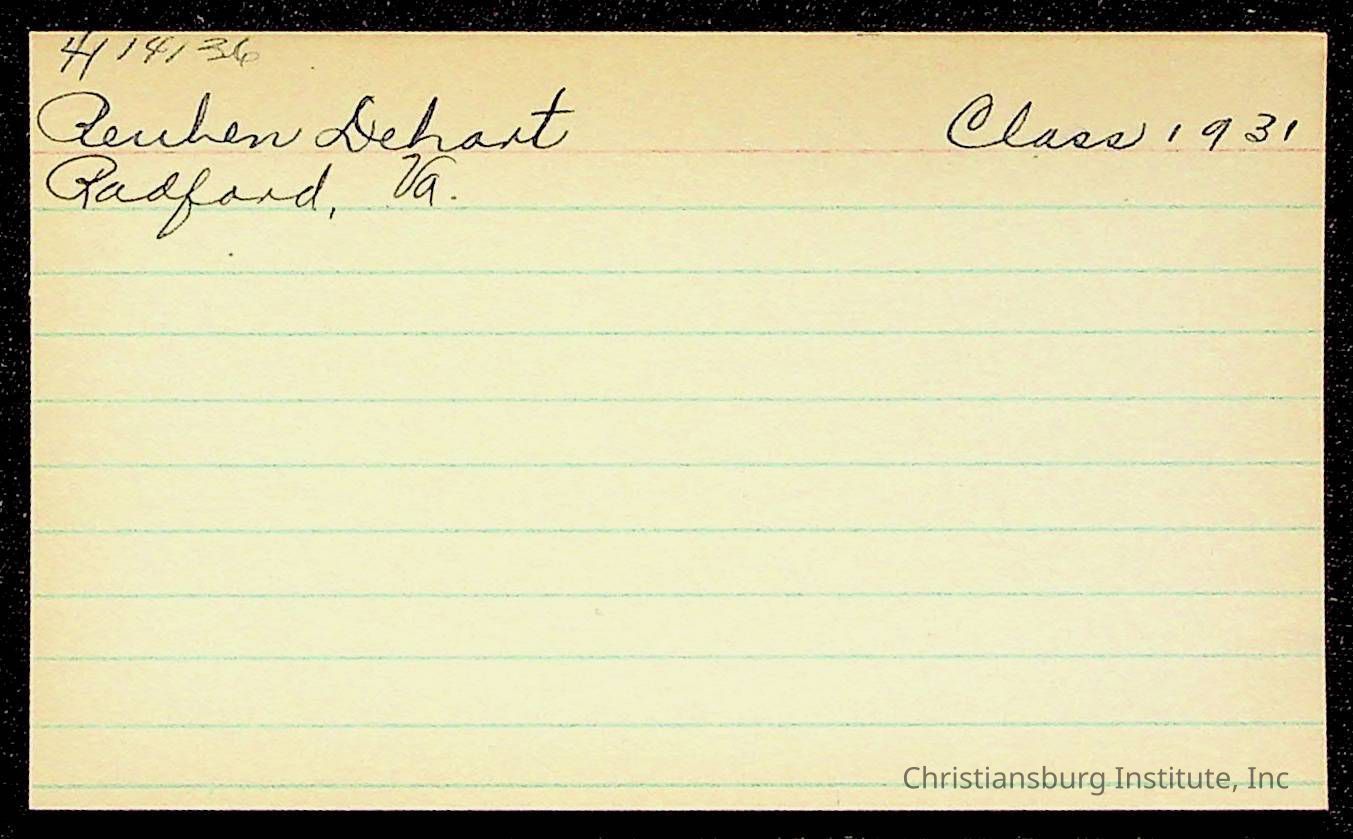 4/14/36
Reuben Dehart Class 1931
Radford, Va.
Christiansburg Institute, Inc